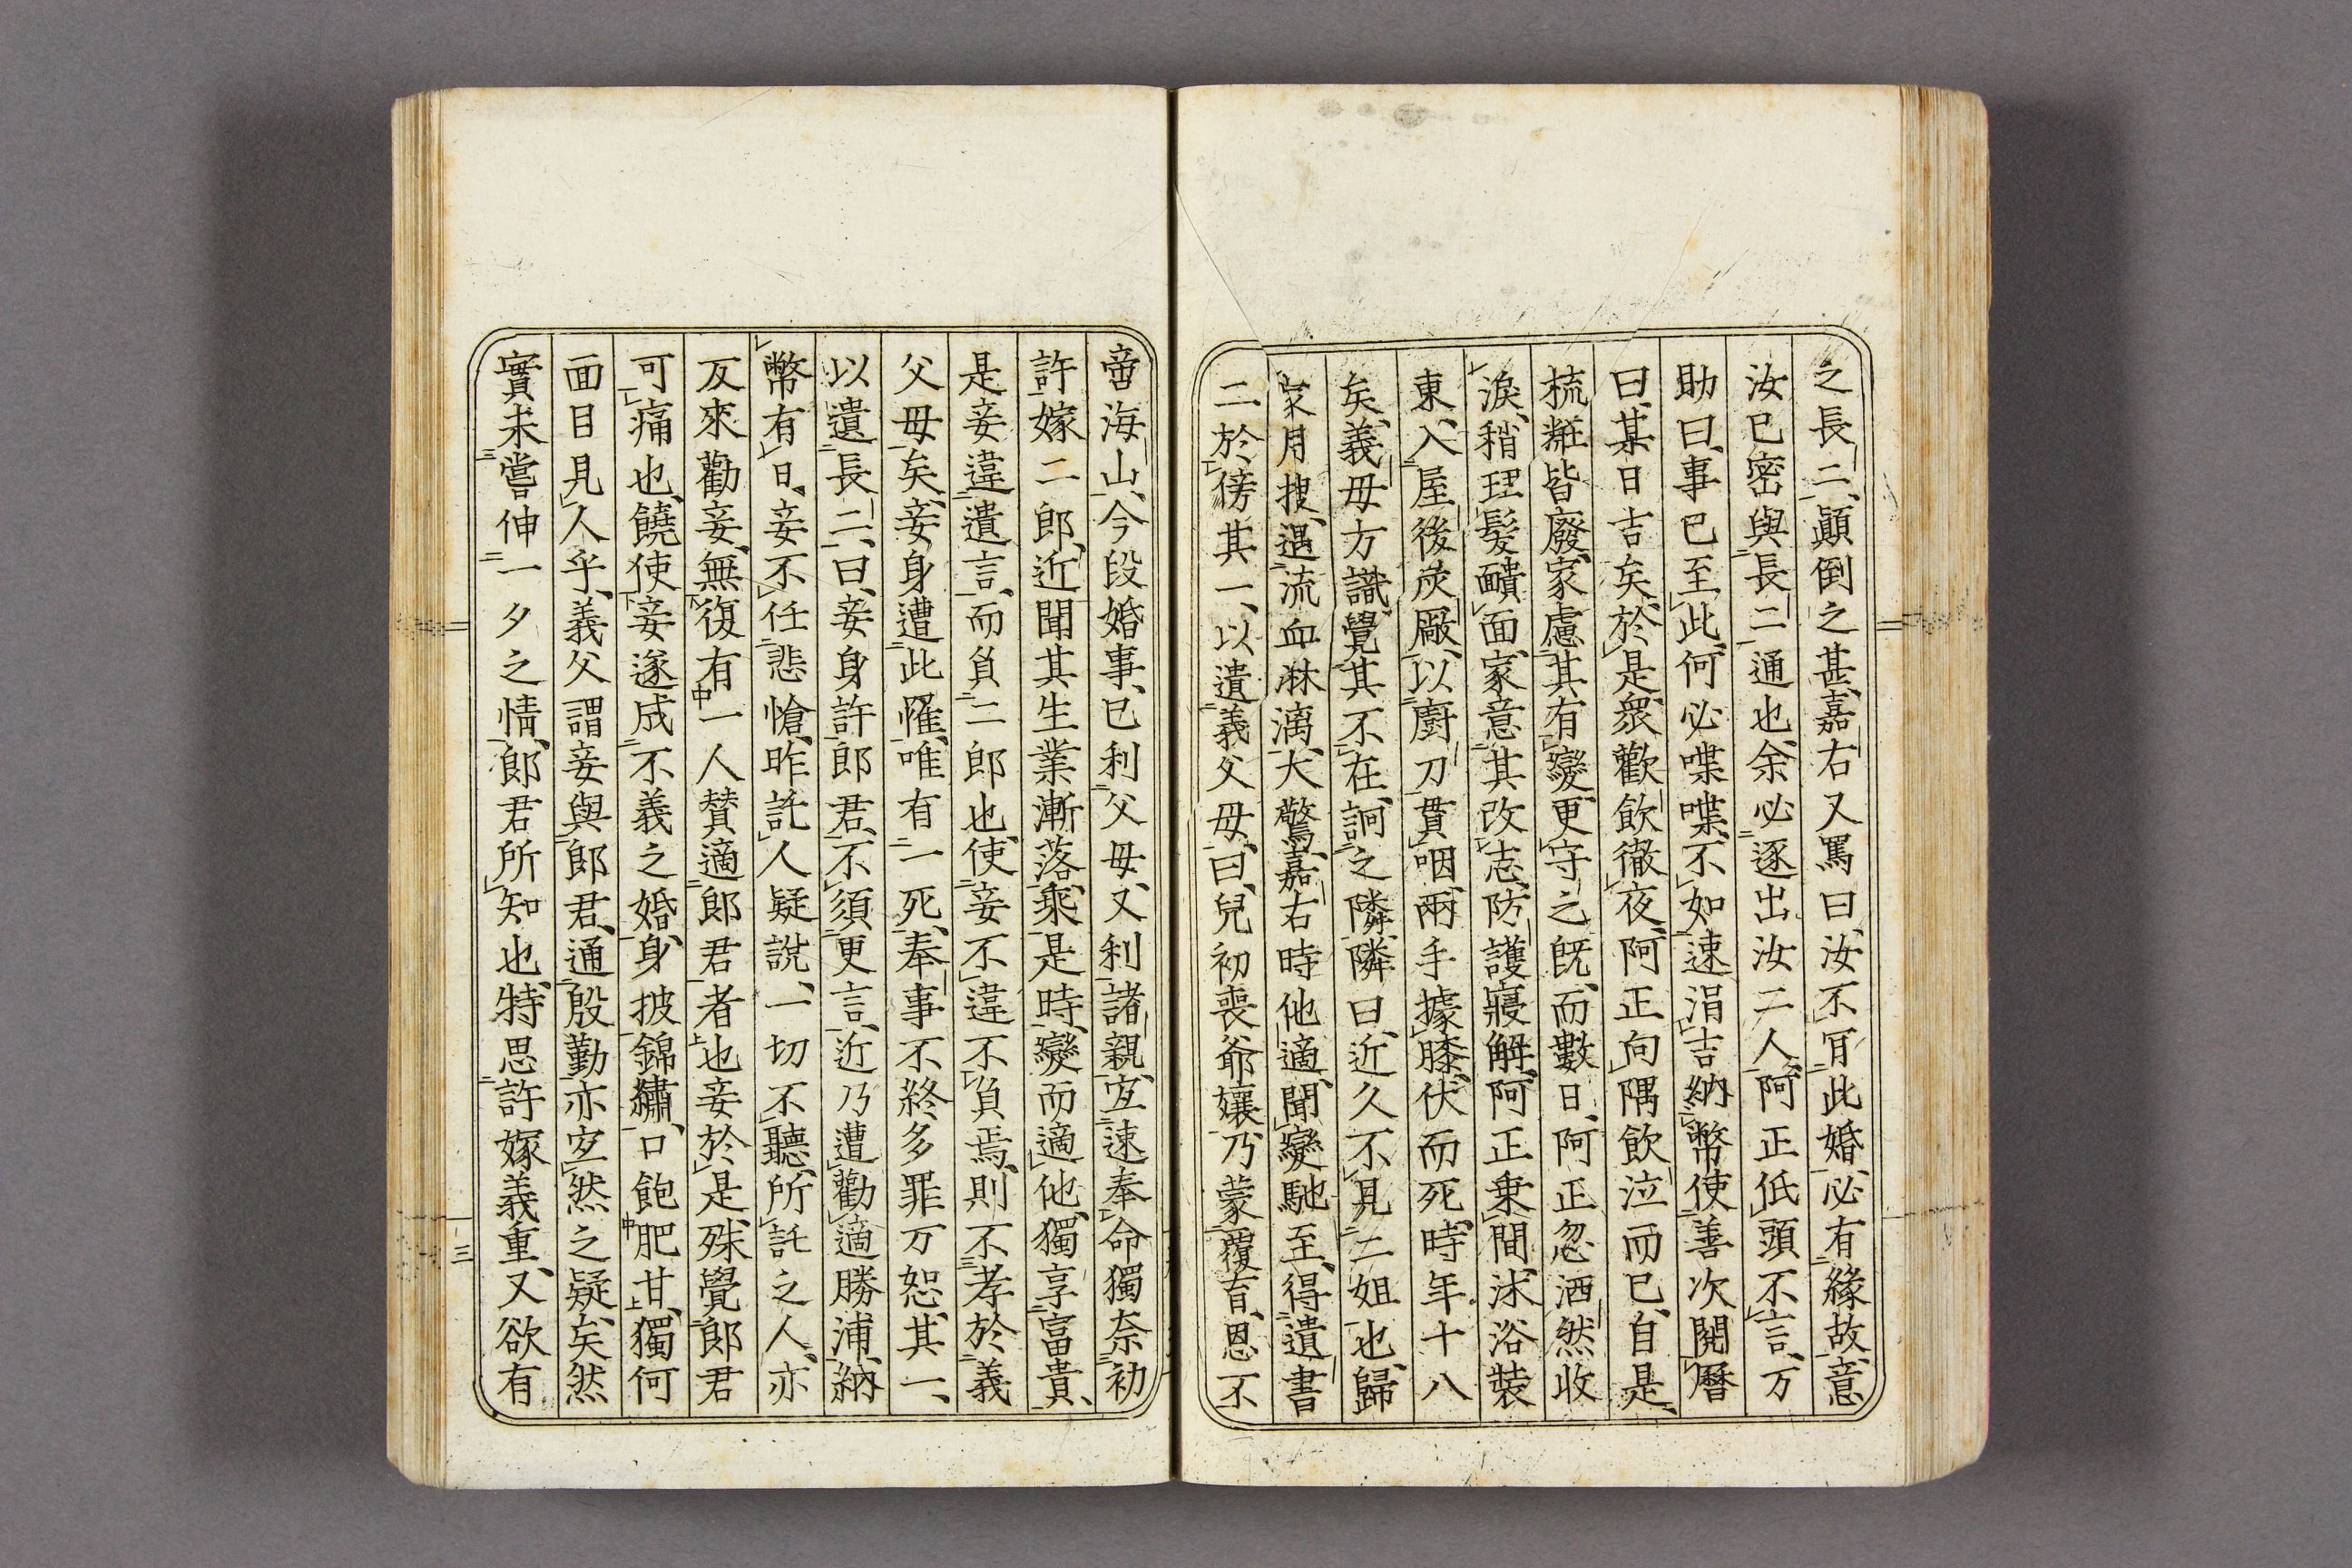 之長二、顚倒之甚、嘉右又罵曰、汝不肎此婚、必有緣故、意
汝已密與長二通也、余必逐出汝二人、阿正低頭不言、万
助曰、事已至此、何必喋喋、不如速涓吉納幣、使善次閱曆
曰、某日吉矣、於是衆歡飮徹夜、阿正向隅飮泣而已、自是、
梳粧皆廢、家慮其有變、更守之、既而數日、阿正忽洒然收
淚、稍理髮靧面、家意其改志、防護寢解、阿正乗間、沐浴裝
束、入屋後茂厰、以廚刀貫咽、兩手據膝、伏而死、時年十八
矣、義母方識覺其不在、詗之隣、隣曰、近久不見二姐也、歸
家月搜、遇流血淋漓、大驚、嘉右時他適、聞變馳至、得遺書
二於傍、其一、以遺義父母、曰、兒初喪爺孃、乃蒙覆育、恩不
啻海山、今段婚事、已利父母、又利諸親、宐速奉命、獨奈初
許嫁二郎、近聞其生業漸落、乘是時變而適他、獨享富貴、
是妾違遺言、而負二郎也、使妾不違不負焉、則不孝於義
父母矣、妾身遭此罹、唯有一死、奉事不終、多罪万恕、其一、
以遺長二、曰、妾身許郎君、不須更言、近乃遭勸適勝浦、納
幣有日、妾不任悲愴、昨託人疑說、一切不聽、所託之人、亦
反來勸妾、無復有一人賛適郎君者也、妾於是殊覺郎君
可痛也、饒使妾遂成不義之婚、身披錦繡、口飽肥甘、獨何
面目見人乎、義父謂妾與郎君、通殷勤、亦宐然之疑矣、然
實未嘗伸一夕之情、郎君所知也、特思許嫁義重、又欲有
三